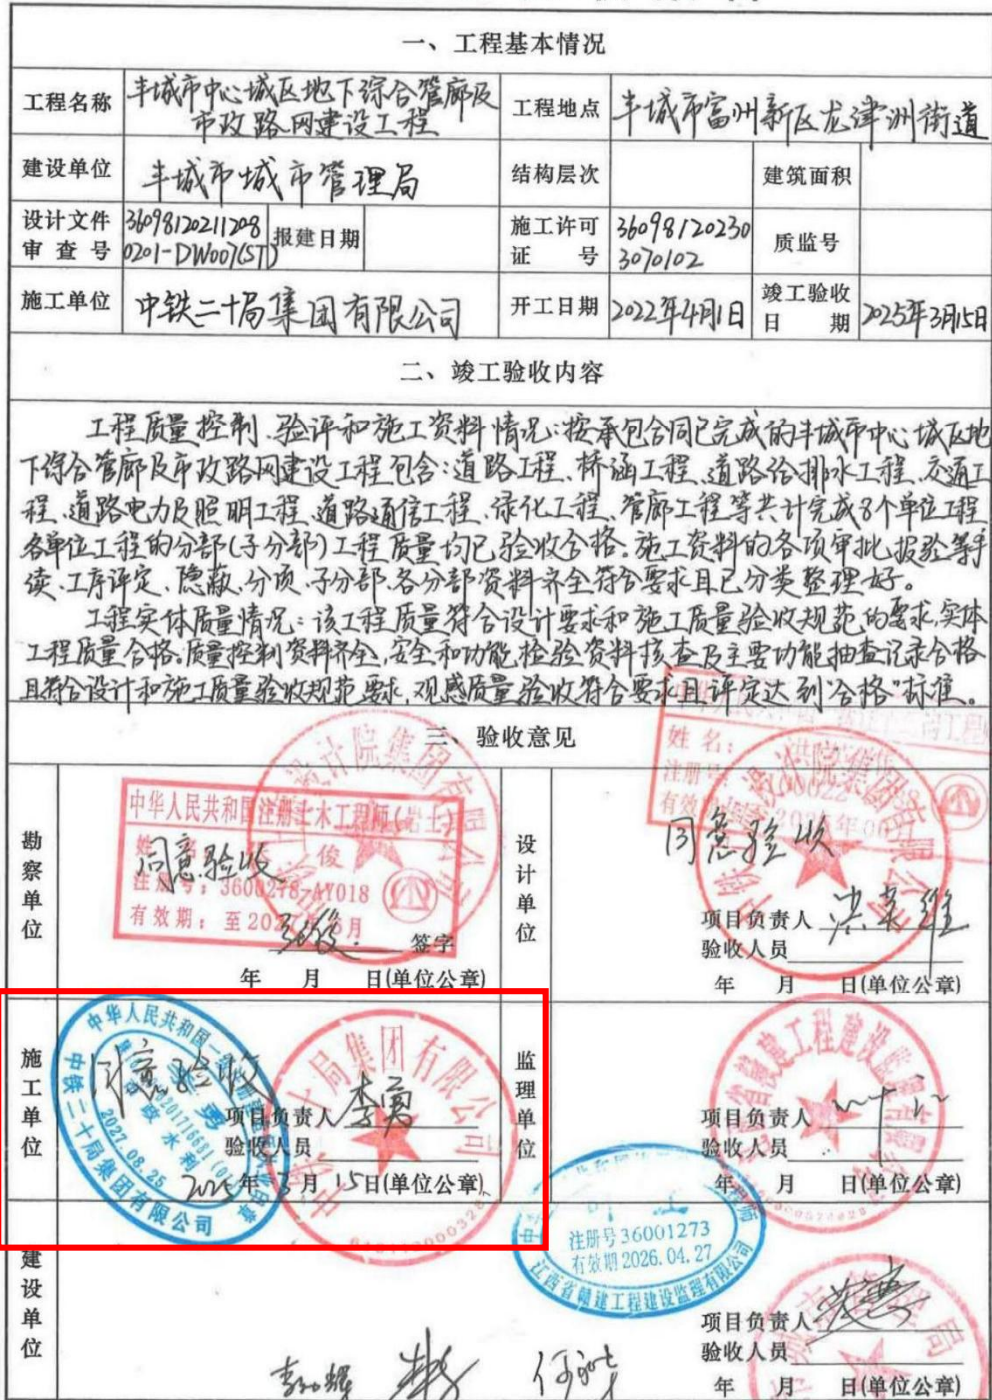 一、工程基本情况
工程名称 丰城市中心城区地下综合管廊及市政路网建设工程 工程地点 丰城市富州新区龙津洲街道
建设单位 丰城市城市管理局 结构层次 建筑面积
设计文件审查号 360981202112080201-DW007(ST) 报建日期 施工许可证号 360981202303070102 质监号
施工单位 中铁二十局集团有限公司 开工日期 2022年4月1日 竣工验收日期 2025年3月15日
二、竣工验收内容
工程质量控制、验评和施工资料情况:按承包合同已完成的丰城市中心城区地
下综合管廊及市政路网建设工程包含:道路工程、桥涵工程、道路给排水工程、交通工
程、道路电力及照明工程、道路通信工程、绿化工程、管廊工程等共计完成8个单位工程
各单位工程的分部(子分部)工程质量均已验收合格。施工资料的各项审批报验等手
续、工序评定、隐蔽、分项、子分部、各分部资料齐全符合要求且已分类整理好。
工程实体质量情况:该工程质量符合设计要求和施工质量验收规范的要求,实体
工程质量合格。质量控制资料齐全,安全和功能检验资料核查及主要功能抽查记录合格
且符合设计和施工质量验收规范要求,观感质量验收符合要求且评定达到“合格”标准。
三、验收意见
勘察单位
中华人民共和国注册土木工程师(岩土)
同意验收
注册号:3600278-AY018
签字
年 月 日(单位公章)
设计单位
姓名:
注册号
有效期
同意验收
项目负责人 洪荣维
验收人员
年 月 日(单位公章)
施工单位
同意验收
中华人民共和国一级
市政 水利
2027.08.25
中铁二十局集团有限公司
项目负责人 李勇
验收人员
2025年3月15日(单位公章)
监理单位
项目负责人
验收人员
年 月 日(单位公章)
注册号36001273
有效期2026.04.27
江西省赣建工程建设监理有限公司
建设单位
项目负责人
验收人员
年 月 日(单位公章)